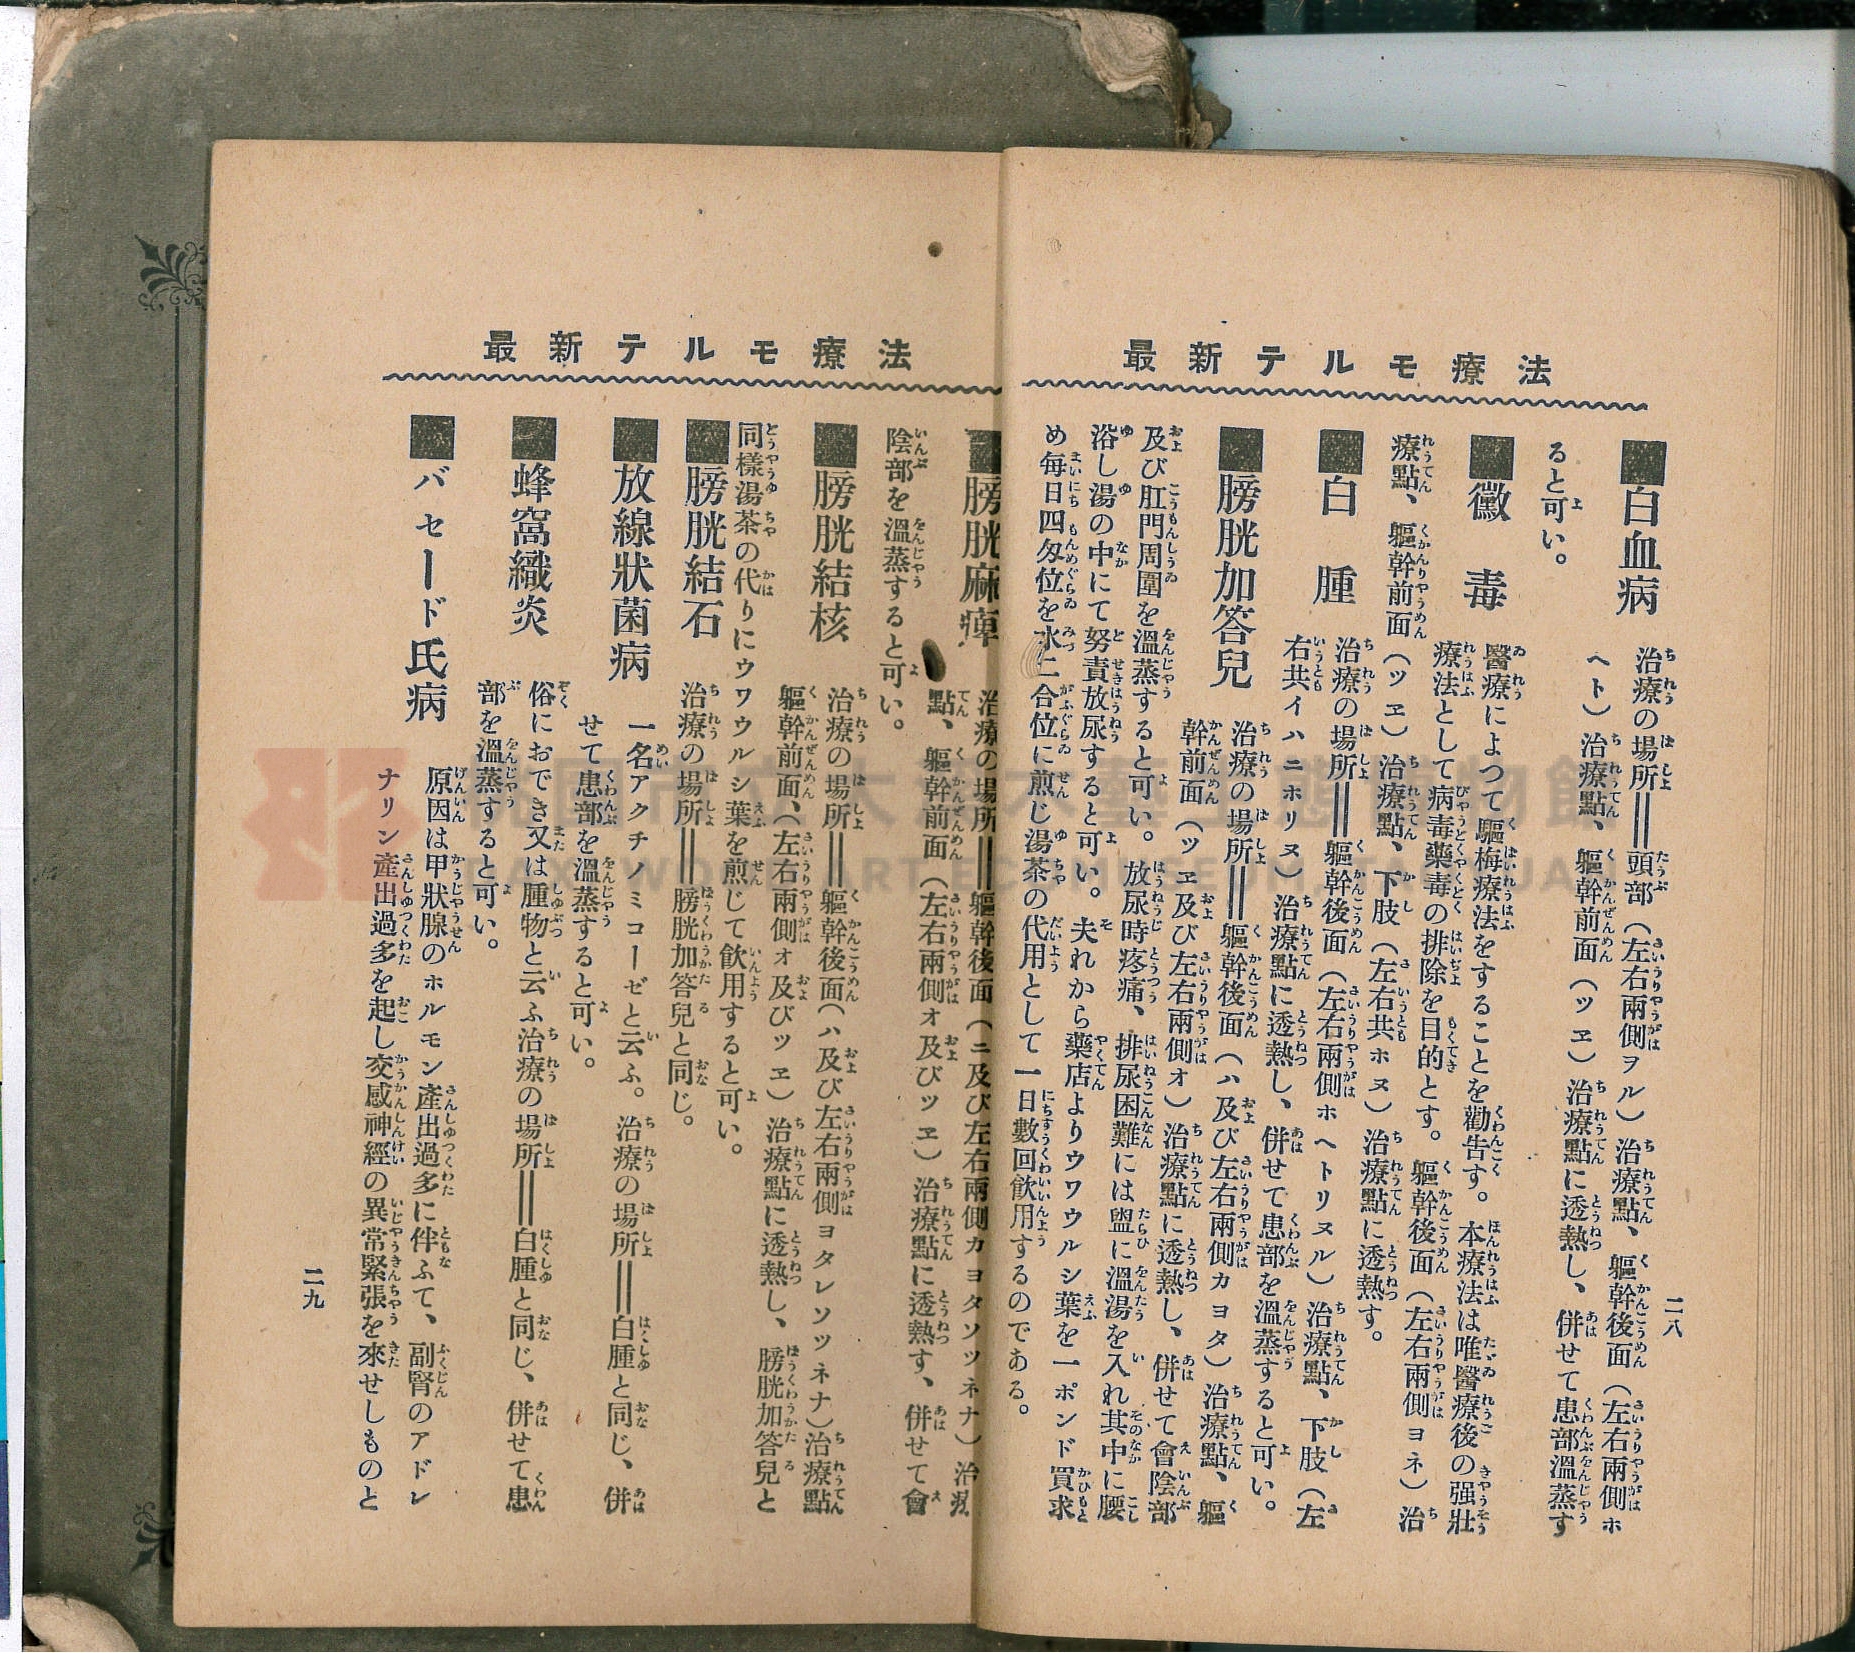 最新テルモ療法
二八
■白血病 治療の場所＝頭部（左右兩側ヲル）治療點、軀幹後面（左右兩側ホ
ヘト）治療點、軀幹前面（ツヱ）治療點に透熱し、併せて患部溫蒸す
ると可い。
■黴毒 醫療によつて驅梅療法をすることを勸告す。本療法は唯醫療後の强壯
療法として病毒藥毒の排除を目的とす。軀幹後面（左右兩側ヨネ）治
療點、軀幹前面（ツヱ）治療點、下肢（左右共ホヌ）治療點に透熱す。
■白腫 治療の場所＝軀幹後面（左右兩側ホヘトリヌル）治療點、下肢（左
右共イハニホリヌ）治療點に透熱し、併せて患部を溫蒸すると可い。
■膀胱加答兒 治療の場所＝軀幹後面（ハ及び左右兩側カヨタ）治療點、軀
幹前面（ツヱ及び左右兩側オ）治療點に透熱し、併せて會陰部
及び肛門周圍を溫蒸すると可い。放尿時疼痛、排尿困難には盥に溫湯を入れ其中に腰
浴し湯の中にて努責放尿すると可い。夫れから藥店よりウワウルシ葉を一ポンド買求
め每日四匁位を水二合位に煎じ湯茶の代用として一日數回飮用するのである。
最新テルモ療法
■膀胱麻痺 治療の場所＝軀幹後面（ニ及び左右兩側カヨタソツネナ）治療
點、軀幹前面（左右兩側オ及びツヱ）治療點に透熱す、併せて會
陰部を溫蒸すると可い。
■膀胱結核 治療の場所＝軀幹後面（ハ及び左右兩側ヨタレソツネナ）治療點
軀幹前面、（左右兩側オ及びツヱ）治療點に透熱し、膀胱加答兒と
同樣湯茶の代りにウワウルシ葉を煎じて飮用すると可い。
■膀胱結石 治療の場所＝膀胱加答兒と同じ。
■放線狀菌病 一名アクチノミコーゼと云ふ。治療の場所＝白腫と同じ、併
せて患部を溫蒸すると可い。
■蜂窩織炎 俗におでき又は腫物と云ふ治療の場所＝白腫と同じ、併せて患
部を溫蒸すると可い。
■バセード氏病 原因は甲狀腺のホルモン產出過多に伴ふて、副腎のアドレ
ナリン產出過多を起し交感神經の異常緊張を來せしものと
二九